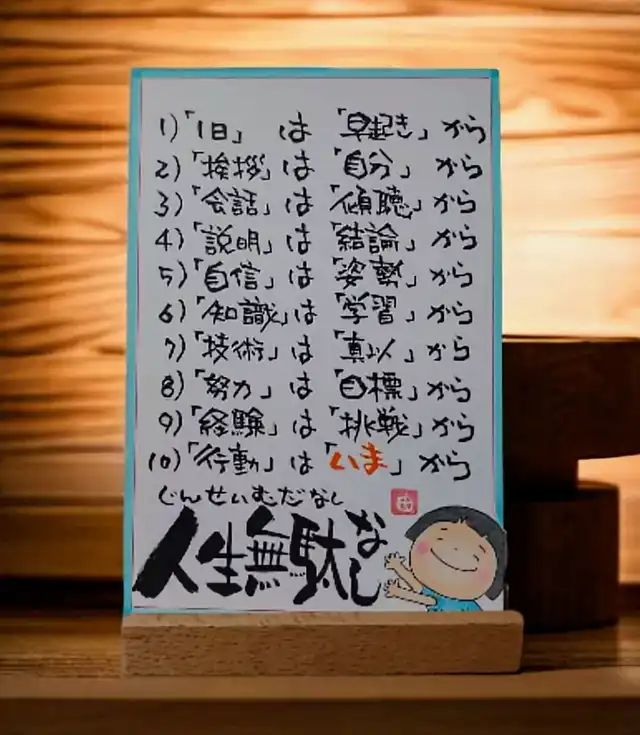 1)「1日」は「早起き」から
2)「挨拶」は「自分」から
3)「会話」は「傾聴」から
4)「説明」は「結論」から
5)「自信」は「姿勢」から
6)「知識」は「学習」から
7)「技術」は「真似」から
8)「努力」は「目標」から
9)「経験」は「挑戦」から
10)「行動」は「いま」から
じんせいむだなし
人生無駄なし